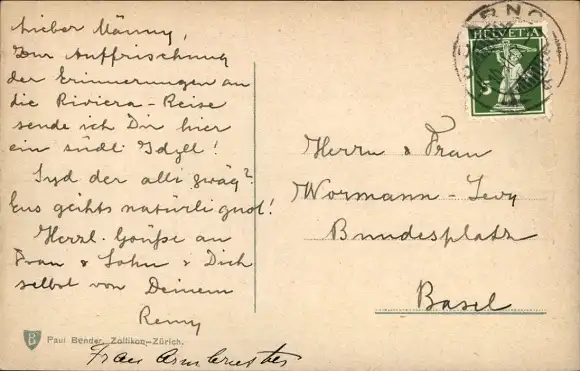 Lieber Männy,
Zur Auffrischung
der Erinnerungen an
die Riviera-Reise
sende ich Dir hier
ein südl. Idyll!
Syd der alli zwäg?
Eus gaihts natürli guet!
Herzl. Grüße an
Frau & Sohn & Dich
selbst von Deinem
Remy
HELVETIA
5
Herrn & Frau
Wormann-Levy
Bundesplatz
Basel
B Paul Bender, Zollikon-Zürich.
Frau Armbruster